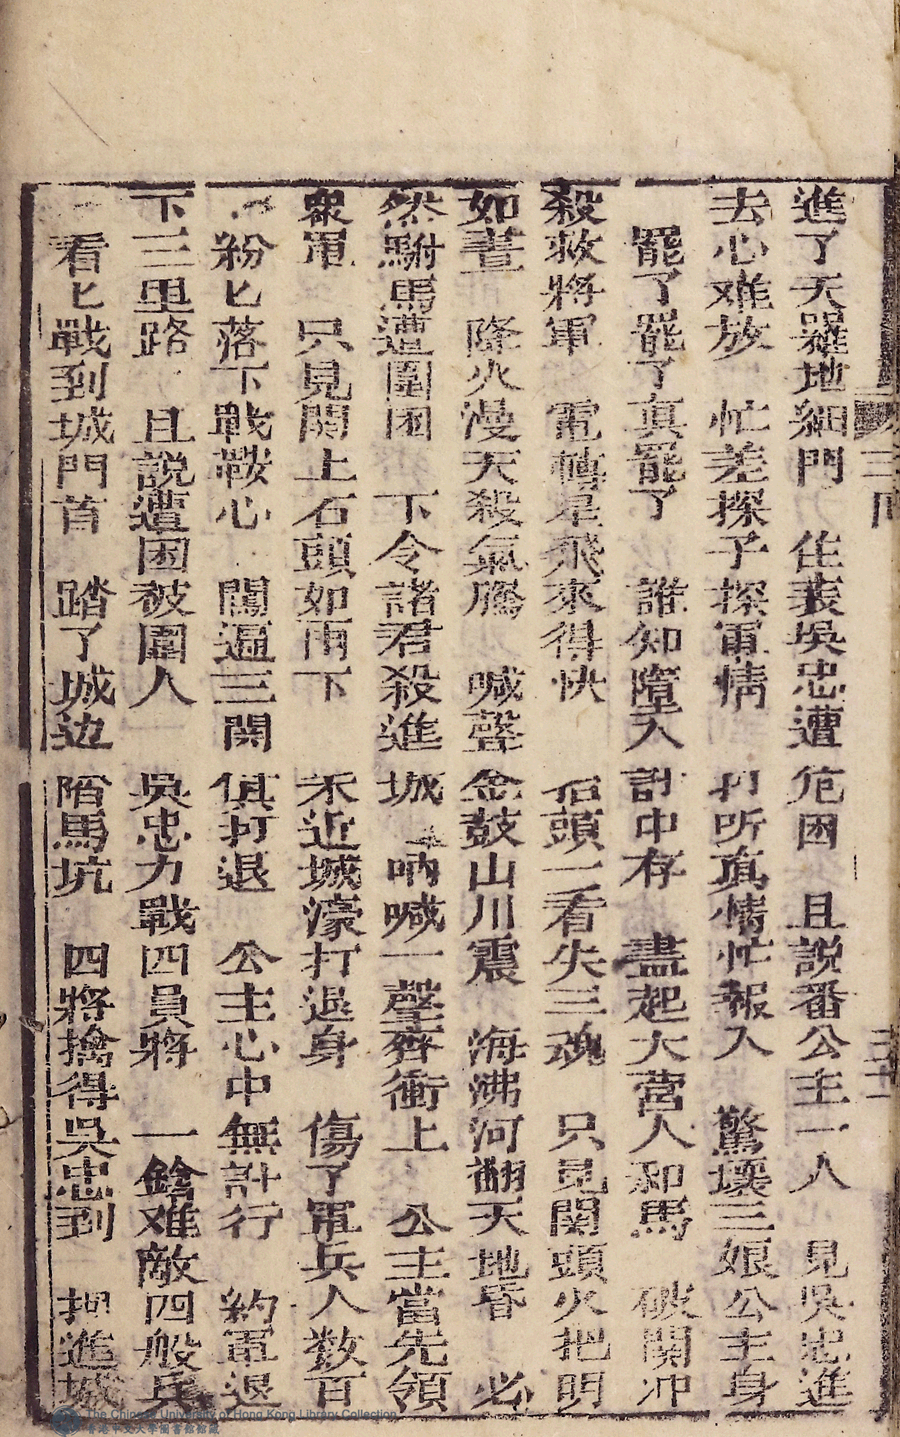 進了天羅地網門　住表吳忠遭危困　且說番公主一人　見吳忠進
去心难放　忙差探子探軍情　打听真情忙報入　驚壞三娘公主身
罷了罷了真罷了　誰知墮入計中存　盡起大營人和馬　破関冲
殺救將軍　電轉星飛來得快　石頭一看失三魂　只見関頭火把明
如晝　降火漫天殺氣騰　喊聲金鼓山川震　海沸河翻天地昏　必
然駙馬遭圍困　下令諸君殺進城　吶喊一聲齊衝上　公主當先領
衆軍　只見関上石頭如雨下　不近城濠打退身　傷了軍兵人数百
紛匕落下戰鞍心　關逼三関俱打退　公主心中無計行　約軍退
下三里路　且說遭困被圍人　吳忠力戰四員將　一鎗难敵四般兵
看匕戰到城門首　踏了城边陷馬坑　四將擒得吳忠到　押進城
三回
三十一
The Chinese University of Hong Kong Library Collection
香港中文大學圖書館館藏